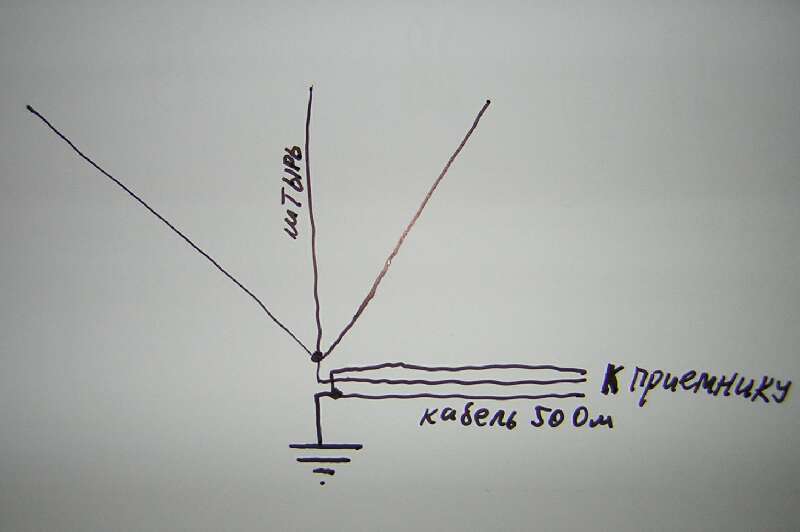 штырь
к приемнику
кабель 50 Ом